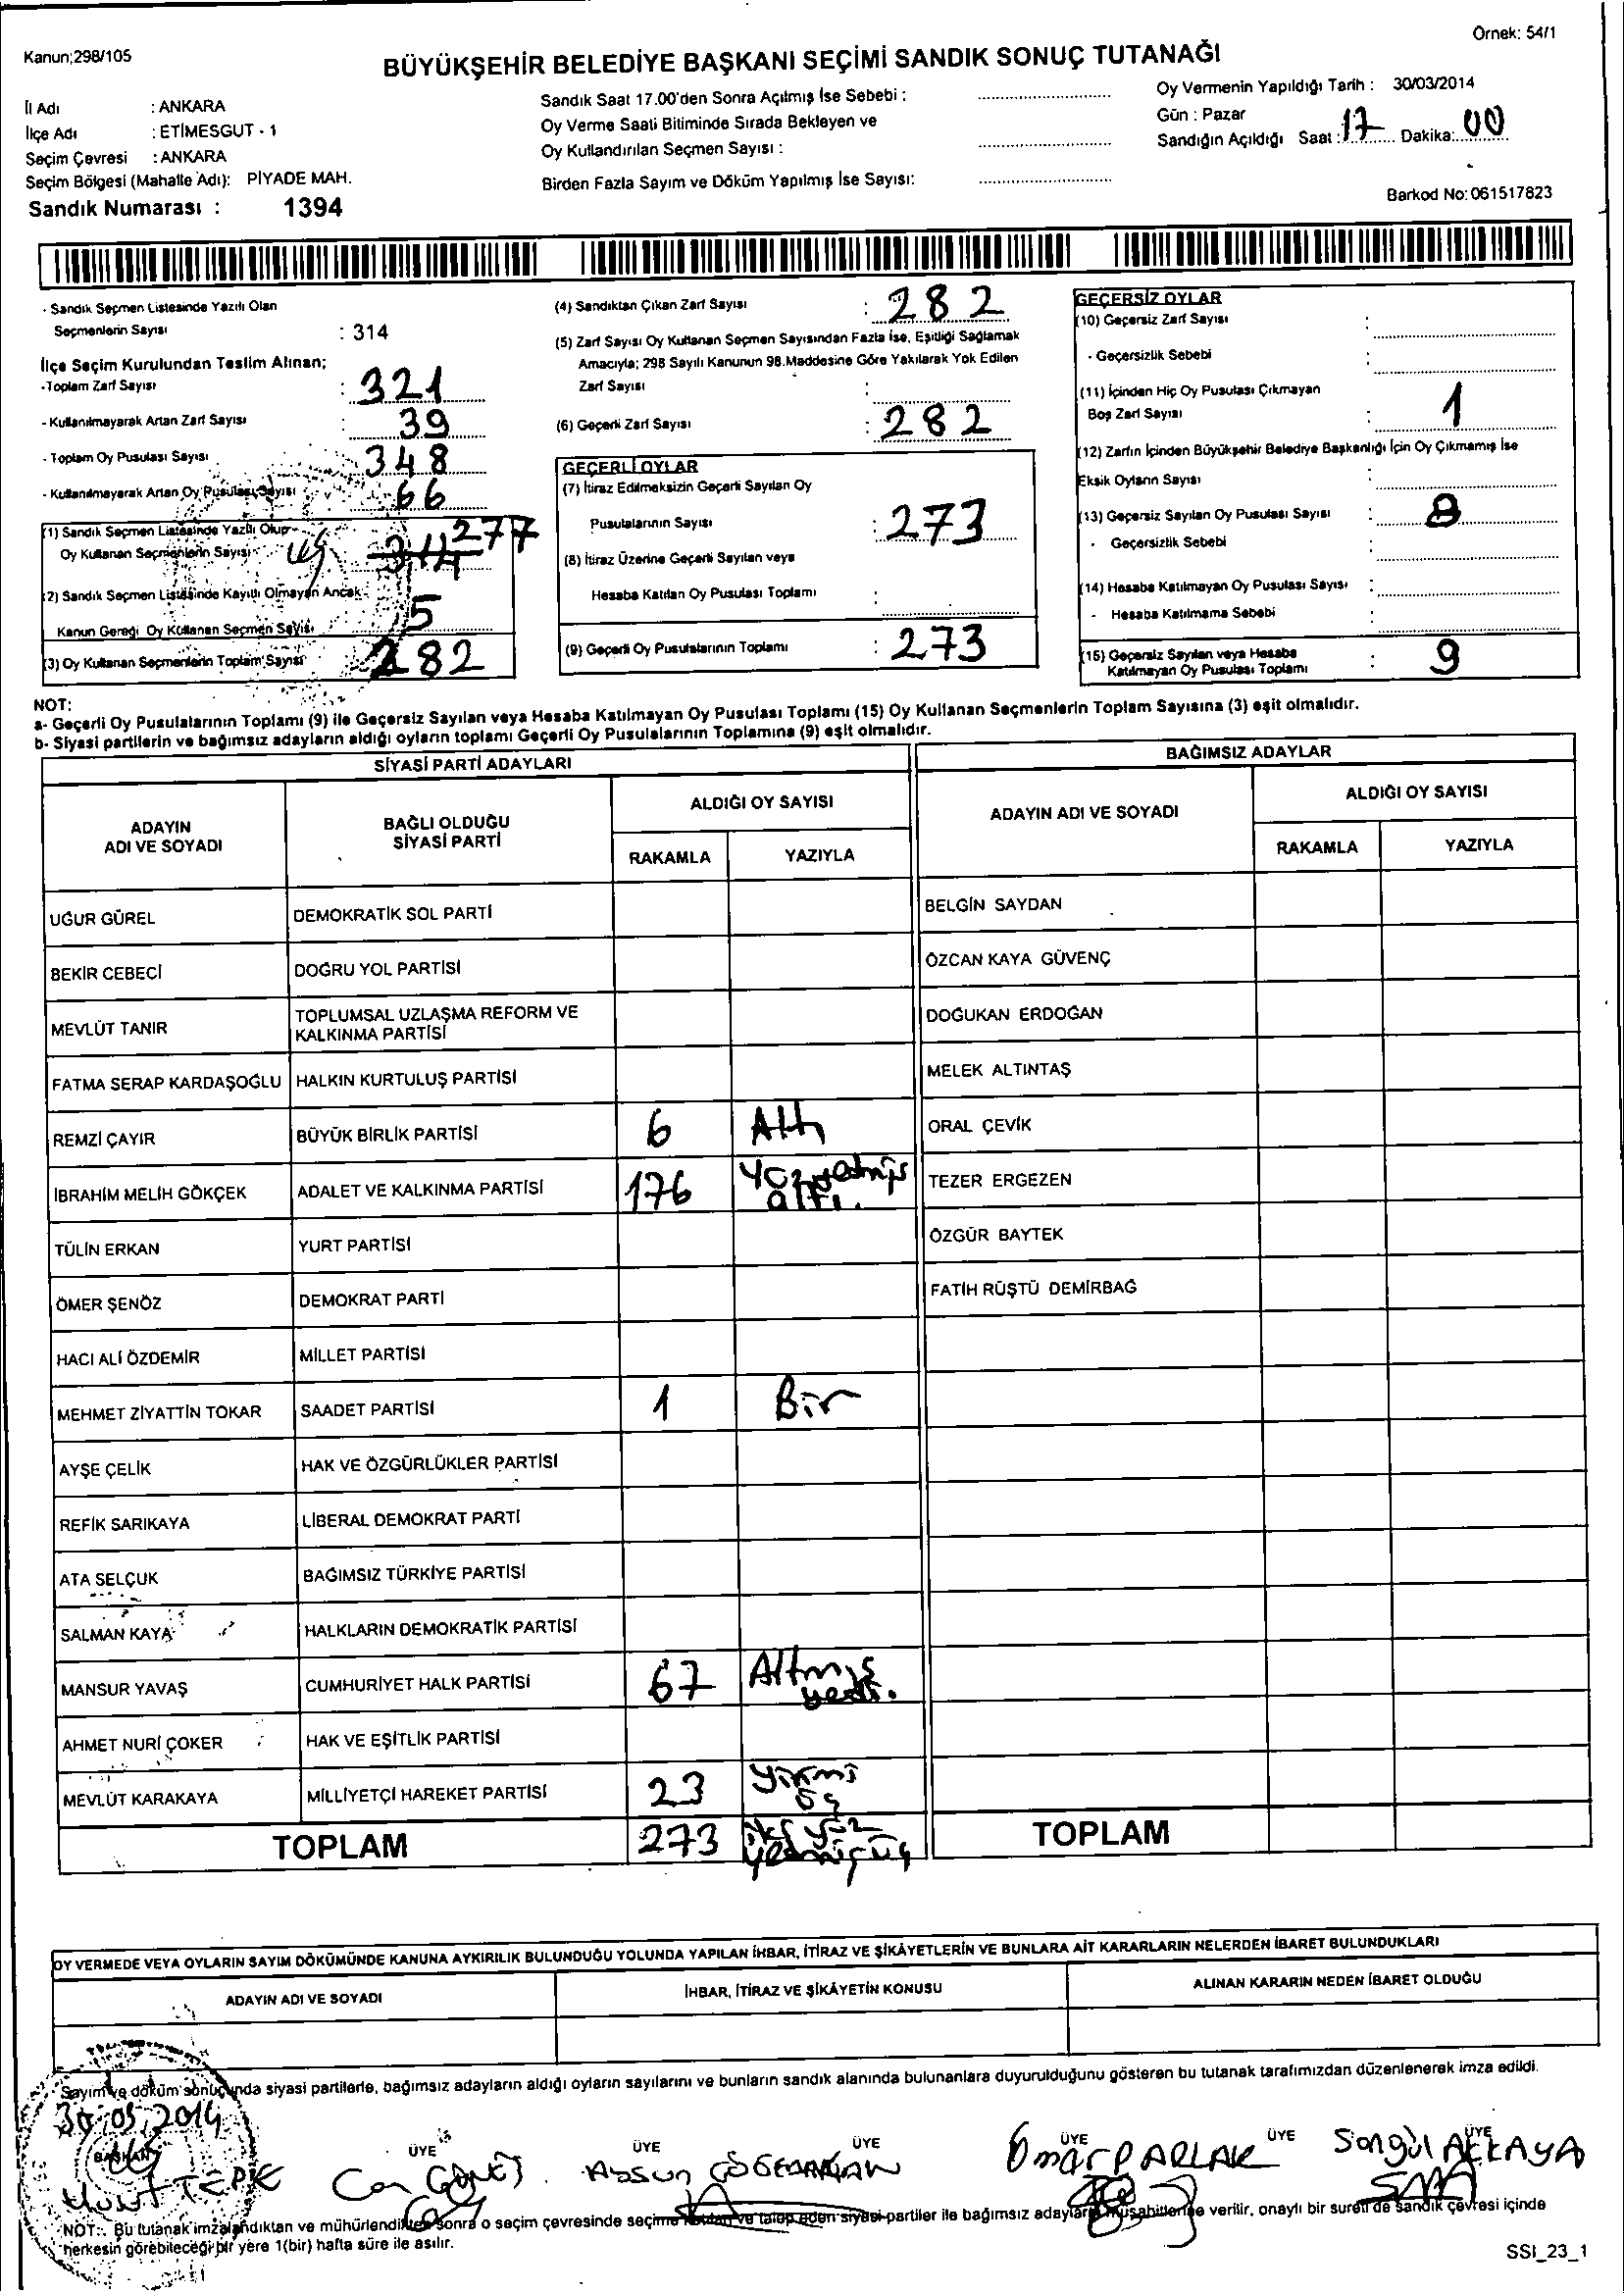 Örnek: 54/1
Kanun;298/105
BÜYÜKŞEHİR BELEDİYE BAŞKANI SEÇİMİ SANDIK SONUÇ TUTANAĞI
İl Adı : ANKARA
İlçe Adı : ETİMESGUT - 1
Seçim Çevresi : ANKARA
Seçim Bölgesi (Mahalle Adı): PİYADE MAH.
Sandık Numarası : 1394
Sandık Saat 17.00'den Sonra Açılmış İse Sebebi :
Oy Verme Saati Bitiminde Sırada Bekleyen ve
Oy Kullandırılan Seçmen Sayısı :
Birden Fazla Sayım ve Döküm Yapılmış İse Sayısı:
Oy Vermenin Yapıldığı Tarih : 30/03/2014
Gün : Pazar
Sandığın Açıldığı Saat : 17 Dakika: 00
Barkod No: 061517823
- Sandık Seçmen Listesinde Yazılı Olan
Seçmenlerin Sayısı : 314
İlçe Seçim Kurulundan Teslim Alınan;
-Toplam Zarf Sayısı : 321
- Kullanılmayarak Artan Zarf Sayısı : 39
- Toplam Oy Pusulası Sayısı 348
- Kullanılmayarak Artan Oy Pusulası Sayısı 66
(1) Sandık Seçmen Listesinde Yazılı Olup
Oy Kullanan Seçmenlerin Sayısı 314 277
(2) Sandık Seçmen Listesinde Kayıtlı Olmayan Ancak
Kanun Gereği Oy Kullanan Seçmen Sayısı 5
(3) Oy Kullanan Seçmenlerin Toplam Sayısı 282
(4) Sandıktan Çıkan Zarf Sayısı : 282
(5) Zarf Sayısı Oy Kullanan Seçmen Sayısından Fazla İse, Eşitliği Sağlamak
Amacıyla; 298 Sayılı Kanunun 98.Maddesine Göre Yakılarak Yok Edilen
Zarf Sayısı :
(6) Geçerli Zarf Sayısı : 282
GEÇERLİ OYLAR
(7) İtiraz Edilmeksizin Geçerli Sayılan Oy
Pusulalarının Sayısı : 273
(8) İtiraz Üzerine Geçerli Sayılan veya
Hesaba Katılan Oy Pusulası Toplamı :
(9) Geçerli Oy Pusulalarının Toplamı : 273
GEÇERSİZ OYLAR
(10) Geçersiz Zarf Sayısı :
- Geçersizlik Sebebi :
(11) İçinden Hiç Oy Pusulası Çıkmayan
Boş Zarf Sayısı : 1
(12) Zarfın İçinden Büyükşehir Belediye Başkanlığı İçin Oy Çıkmamış İse
Eksik Oyların Sayısı :
(13) Geçersiz Sayılan Oy Pusulası Sayısı : 8
- Geçersizlik Sebebi :
(14) Hesaba Katılmayan Oy Pusulası Sayısı :
- Hesaba Katılmama Sebebi :
(15) Geçersiz Sayılan veya Hesaba
Katılmayan Oy Pusulası Toplamı : 9
NOT:
a- Geçerli Oy Pusulalarının Toplamı (9) ile Geçersiz Sayılan veya Hesaba Katılmayan Oy Pusulası Toplamı (15) Oy Kullanan Seçmenlerin Toplam Sayısına (3) eşit olmalıdır.
b- Siyasi partilerin ve bağımsız adayların aldığı oyların toplamı Geçerli Oy Pusulalarının Toplamına (9) eşit olmalıdır.
SİYASİ PARTİ ADAYLARI
ADAYIN ADI VE SOYADI BAĞLI OLDUĞU SİYASİ PARTİ ALDIĞI OY SAYISI
RAKAMLA YAZIYLA
UĞUR GÜREL DEMOKRATİK SOL PARTİ
BEKİR CEBECİ DOĞRU YOL PARTİSİ
MEVLÜT TANIR TOPLUMSAL UZLAŞMA REFORM VE
KALKINMA PARTİSİ
FATMA SERAP KARDAŞOĞLU HALKIN KURTULUŞ PARTİSİ
REMZİ ÇAYIR BÜYÜK BİRLİK PARTİSİ 6 Altı
İBRAHİM MELİH GÖKÇEK ADALET VE KALKINMA PARTİSİ 176 Yüzyetmiş
altı.
TÜLİN ERKAN YURT PARTİSİ
ÖMER ŞENÖZ DEMOKRAT PARTİ
HACI ALİ ÖZDEMİR MİLLET PARTİSİ
MEHMET ZİYATTİN TOKAR SAADET PARTİSİ 1 Bir
AYŞE ÇELİK HAK VE ÖZGÜRLÜKLER PARTİSİ
REFİK SARIKAYA LİBERAL DEMOKRAT PARTİ
ATA SELÇUK BAĞIMSIZ TÜRKİYE PARTİSİ
SALMAN KAYA HALKLARIN DEMOKRATİK PARTİSİ
MANSUR YAVAŞ CUMHURİYET HALK PARTİSİ 67 Altmış
yedi.
AHMET NURİ ÇOKER HAK VE EŞİTLİK PARTİSİ
MEVLÜT KARAKAYA MİLLİYETÇİ HAREKET PARTİSİ 23 Yirmi
üç
TOPLAM 273 iki yüz
yetmişüç
BAĞIMSIZ ADAYLAR
ADAYIN ADI VE SOYADI ALDIĞI OY SAYISI
RAKAMLA YAZIYLA
BELGİN SAYDAN
ÖZCAN KAYA GÜVENÇ
DOĞUKAN ERDOĞAN
MELEK ALTINTAŞ
ORAL ÇEVİK
TEZER ERGEZEN
ÖZGÜR BAYTEK
FATİH RÜŞTÜ DEMİRBAĞ
TOPLAM
OY VERMEDE VEYA OYLARIN SAYIM DÖKÜMÜNDE KANUNA AYKIRILIK BULUNDUĞU YOLUNDA YAPILAN İHBAR, İTİRAZ VE ŞİKÂYETLERİN VE BUNLARA AİT KARARLARIN NELERDEN İBARET BULUNDUKLARI
ADAYIN ADI VE SOYADI İHBAR, İTİRAZ VE ŞİKÂYETİN KONUSU ALINAN KARARIN NEDEN İBARET OLDUĞU
Sayım ve döküm sonucunda siyasi partilerle, bağımsız adayların aldığı oyların sayılarını ve bunların sandık alanında bulunanlara duyurulduğunu gösteren bu tutanak tarafımızdan düzenlenerek imza edildi.
30.03.2014
BAŞKAN ÜYE ÜYE ÜYE ÜYE ÜYE ÜYE
TEPE Can Ömer PARLAK Songül AKKAYA
NOT:. Bu tutanak imzalandıktan ve mühürlendikten sonra o seçim çevresinde seçime katılan ve talep eden siyasi partiler ile bağımsız adayların müşahitlerine verilir, onaylı bir sureti de sandık çevresi içinde
herkesin görebileceği bir yere 1(bir) hafta süre ile asılır.
SSI_23_1